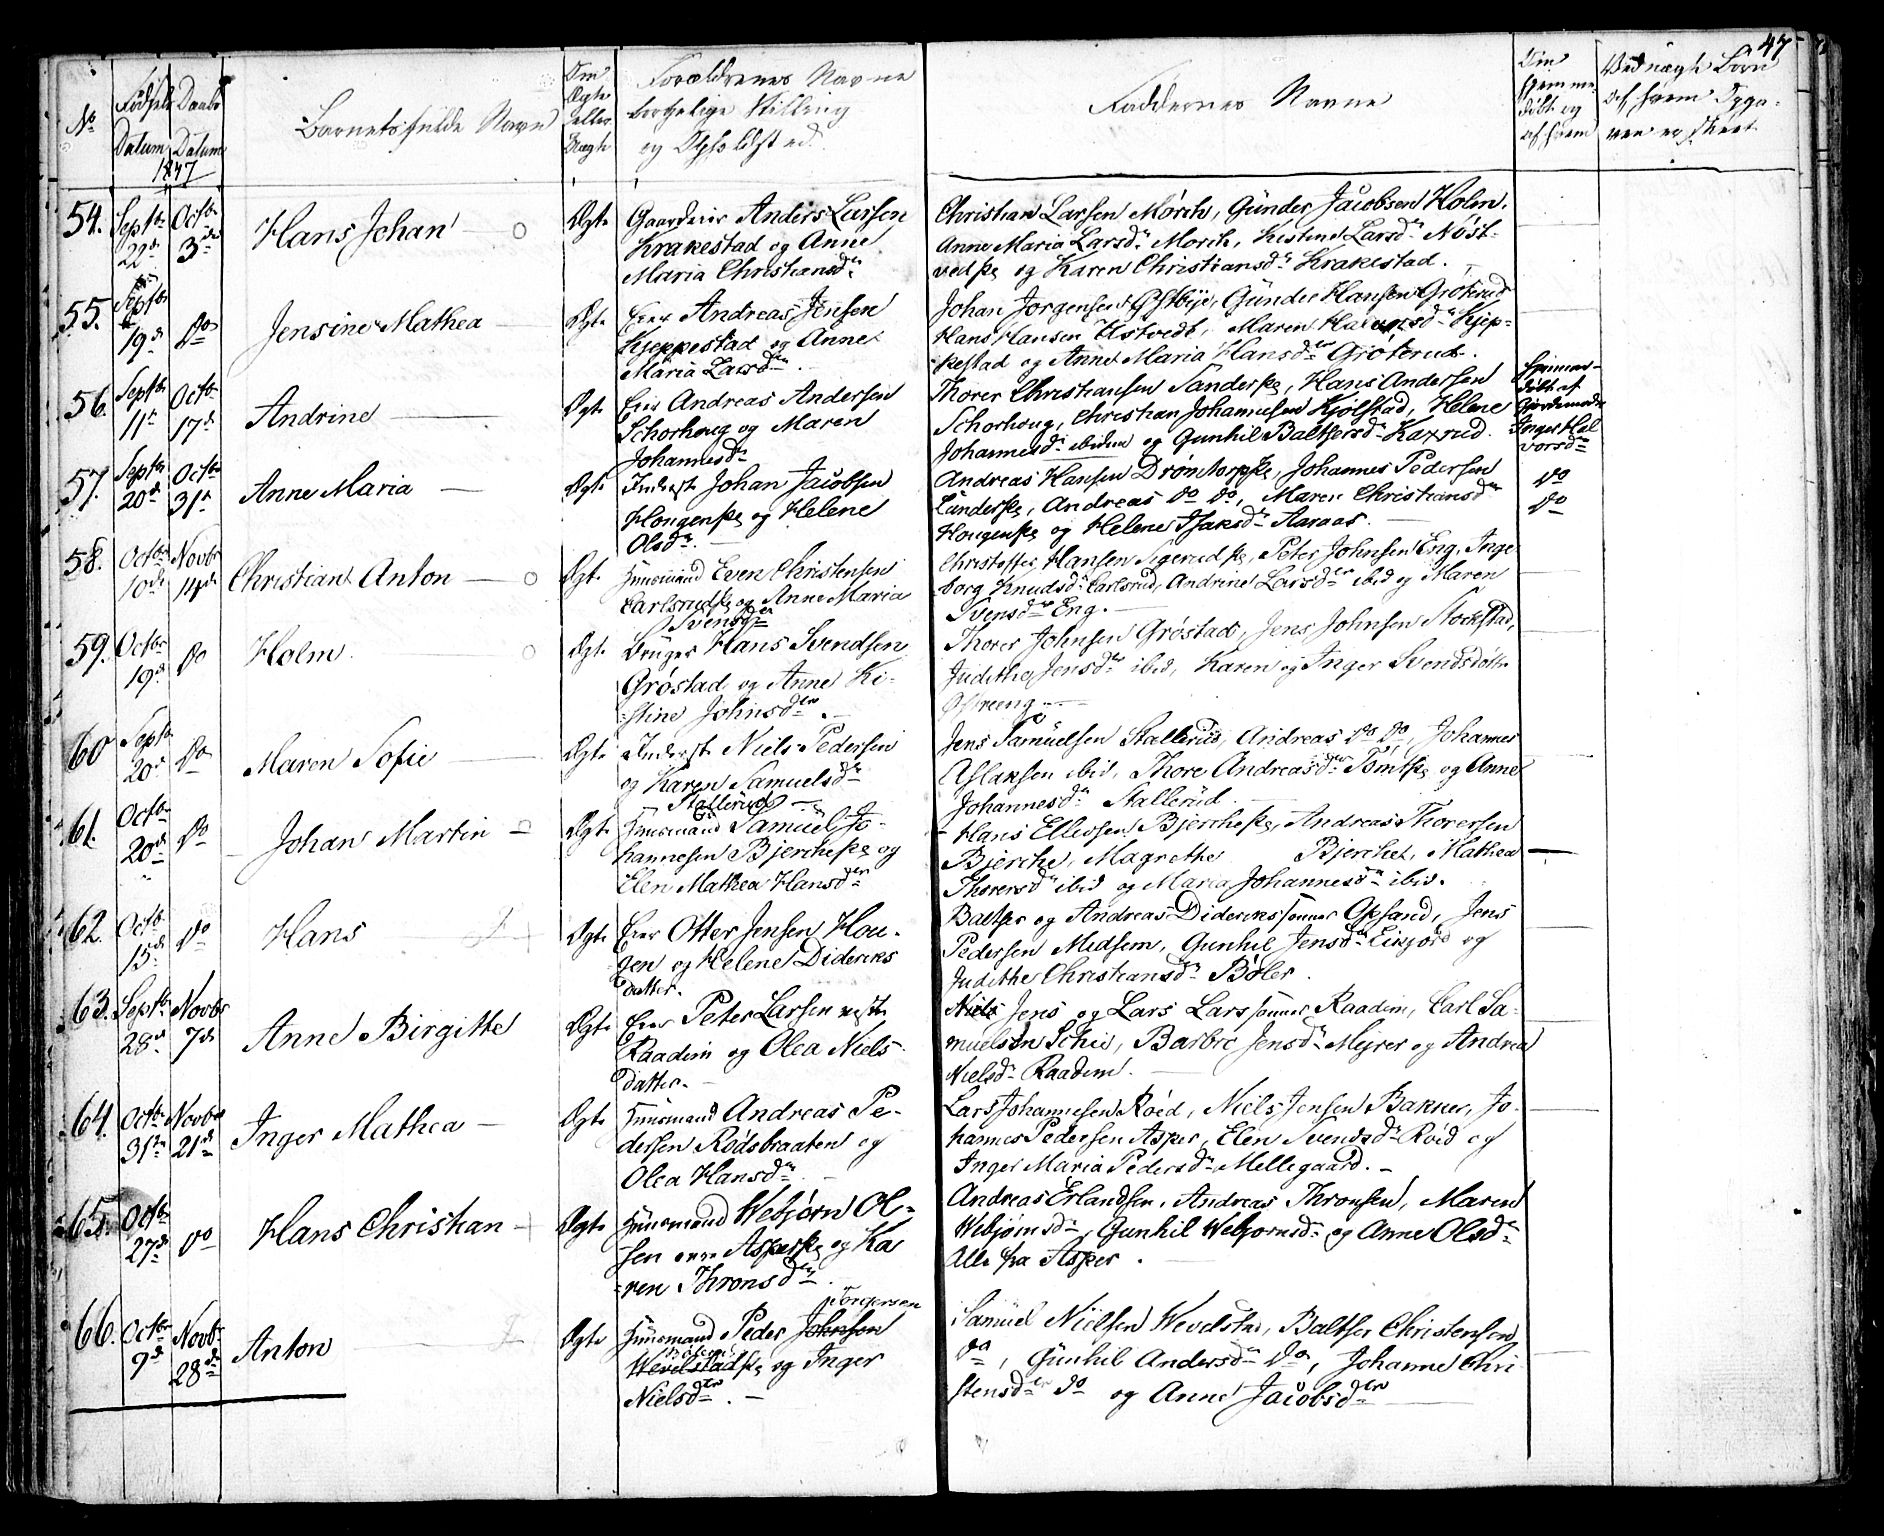 47
No
Fødsels Daabs
Datum Datum
1847
Barnets fulde Navn
Om Ægte eller Uægte
Forældrenes Navne
borgelige Stilling
og Opholdsted
Faddernes Navne
Om hjemmedøbt og af hvem
Ved uægte Børn
54. Septbr 22de Octbr 3die Hans Johan Ægte
Gaardeier Anders Larsen
Krakestad og Anne
Maria Christiansdr
Christian Larsen Mörch, Günder Jacobsen Holm,
Anne Maria Larsdr Mörch, Kistine Larsdr Nöst-
vedpl og Karen Christiansdr Krakestad.
55. Septbr 19de Do Jensine Mathea Ægte
Eier Andreas Jensen
Kjeppestad og Anne
Maria Larsdr
Johan Jorgensen Østbye, Günder Hansen Gröterud
Hans Hansen Ustvedt, Maren Hansdr Kjep-
pestad og Anne Maria Hansdr Gröterud.
56. Septbr 11te Octbr 17de Andrine Ægte
Eier Andreas Andersen
Schorhoug og Maren
Johannesdr
Thorer Christiansen Sanderpl, Hans Andersen
Schorhoug, Christian Johannesen Kjolstad, Helene
Johannesdr ibidem og Gunhil Baltsersdr Kaxrud.
Hjemme-
døbt af
Gjordemoder
Inger Hal
vorsdr
57. Septbr 20de Octbr 31te Anne Maria Ægte
Inderst Johan Jacobsen
Hougenpl og Helene
Olsdr.
Andreas Hansen Dröntorppl, Johannes Pedersen
Sanderpl, Andreas Do Do, Maren Christiansdr
Hougenpl og Helene Isaksdr Aaraas.
Do
Do
58. Octbr 10de Novbr 14de Christian Anton Ægte
Huusmand Even Christensen
Carlsrudpl og Anne Maria
Svensdr
Christoffer Hansen Sigerudpl, Peter Johnsen Eng, Inge
borg Knudsdr Carlsrud, Andrine Larsdr ibid og Maren
Svensdr Eng.
59. Octbr 19de Do Holm Ægte
Bruger Hans Svendsen
Gröstad og Anne Ki-
stine Johnsdr.
Thorer Johnsen Gröstad, Jens Johnsen Stockstad,
Judithe Jensdr ibid, Karen og Inger Svendsdöttre
60 Septbr 20de Do Maren Sofie Ægte
Inderst Niels Pedersen
og Karen Samuelsdr
Stallerud
Jens Samuelsen Stallerud, Andreas Do Do, Johannes
Aslaksen ibid, Thore Andreasdr Tomtpl og Anne
Johannesdr Stallerud.
61. Octbr 20de Do Johan Martin Ægte
Huusmand Samuel Jo-
hannesen Bjerchepl og
Elen Mathea Hansdr
Hans Ellevsen Bjerchepl, Andreas Thorersen
Bjerche, Magrethe Bjerche, Mathea
Thorersdr ibid og Maria Johannesdr ibid.
62. Octbr 15de Do Hans Ægte
Eier Otter Jensen Hou-
gen og Helene Dideriks
datter.
Baltser og Andreas Dideriks sønner Opsand, Jens
Pedersen Midsem, Gunhil Jensdr Eikjord og
Judithe Christiansdr Böler.
63. Septbr 28de Novbr 7de Anne Birgitte Ægte
Eier Peter Larsen vestre
Raadim og Olea Niels-
datter.
Niels Jens og Lars Lars sønner Raadim, Carl Sa-
muelsen Schie, Barbro Jensdr Meyrer og Andrea
Nielsdr Raadim.
64. Octbr 31te Novbr 21de Inger Mathea Ægte
Huusmand Andreas Pe-
dersen Rödsbraaten og
Olea Hansdr
Lars Johannesen Röed, Niels Jensen Bakker, Jo-
hannes Pedersen Asper, Elen Svendsdr Röed og
Inger Maria Pedersdr Mellegaard.
65. Octbr 27de Do Hans Christian Ægte
Huusmand Webjørn Ol-
sen Asperpl og Ka
ren Thronsdr.
Andreas Erlandsen, Andreas Thronsen, Maren
Webjørnsdr, Gunhil Webjornsdr og Anne Olsdr
Alle fra Asper.
66. Octbr 9de Novbr 28de Anton Ægte
Torgersen
Huusmand Peder Johnson
Wevelstadpl og Inger
Nielsdr.
Samuel Nielsen Wevelstad, Baltser Christensen
Do, Günhil Andersdr Do, Johanne Chri
stensdr Do og Anne Jacobsdr